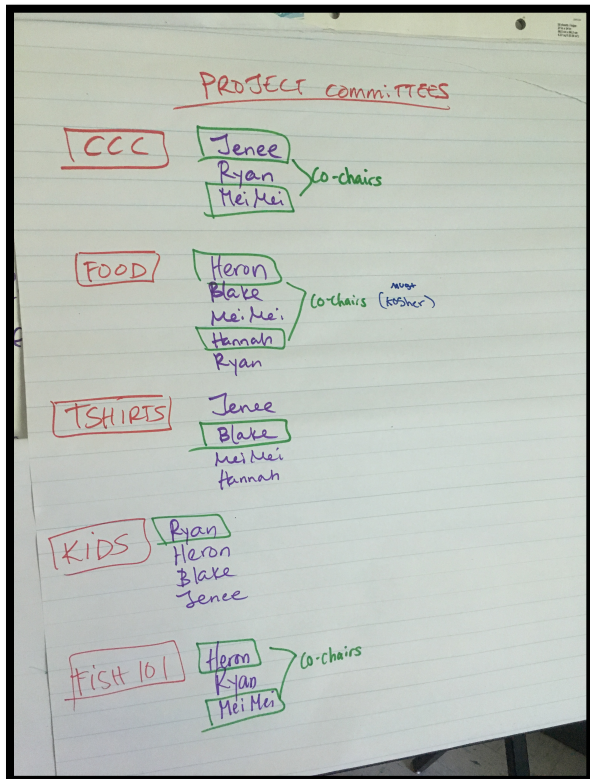 PROJECT committEES
CCC
Jenee
Ryan
Mei Mei
Co-chairs
FOOD
Heron
Blake
Mei Mei
Hannah
Ryan
Co-chairs
must
(kosher)
TSHIRTS
Jenee
Blake
Mei Mei
Hannah
KiDS
Ryan
Heron
Blake
Jenee
FiSH 101
Heron
Ryan
Mei Mei
Co-chairs